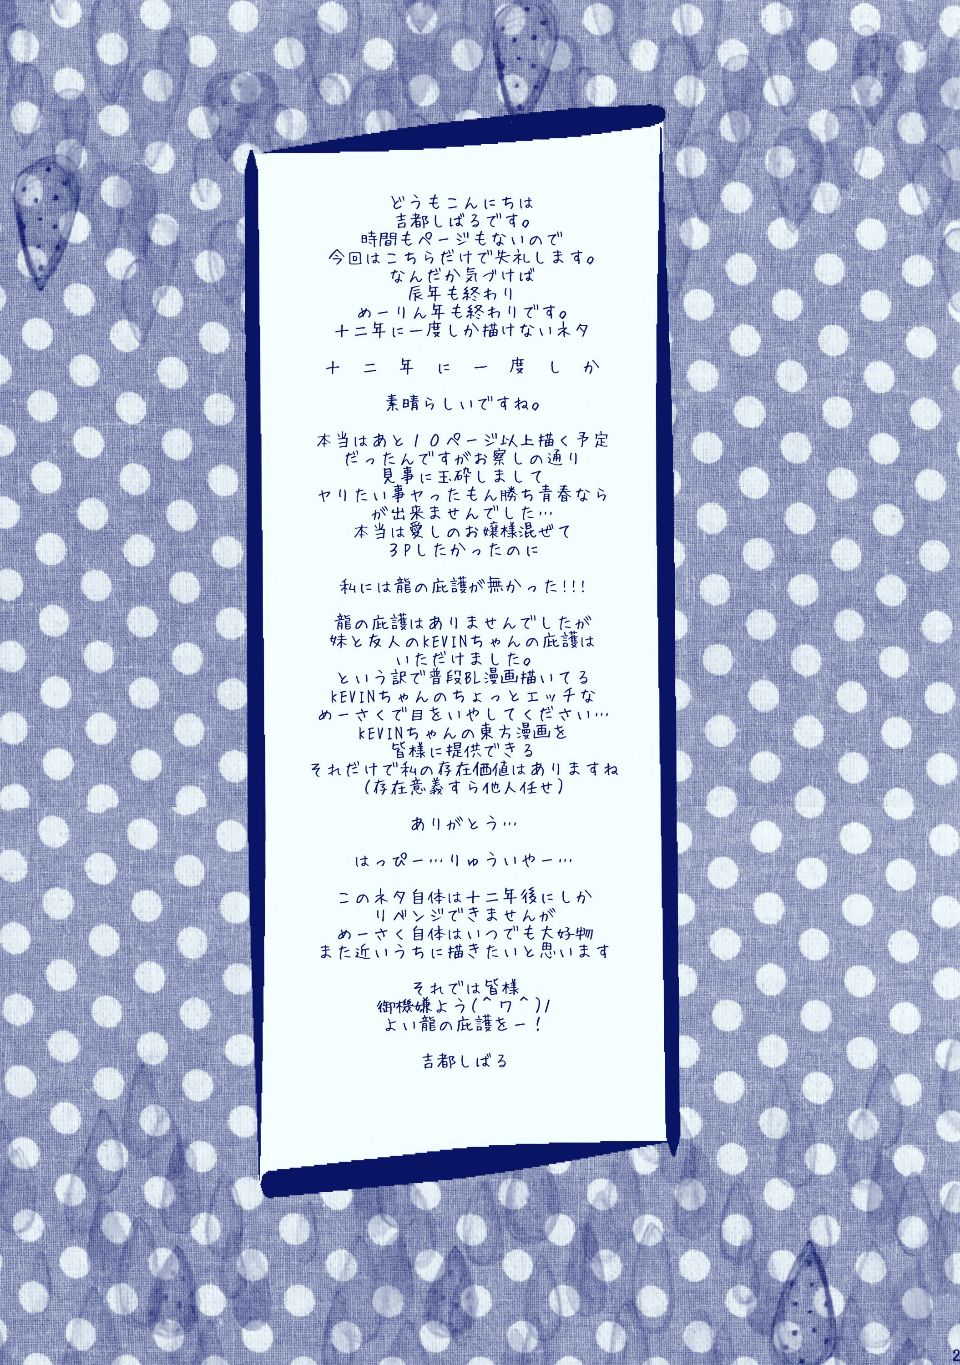 どうもこんにちは
吉都しばるです。
時間もページもないので
今回はこちらだけで失礼します。
なんだか気づけば
辰年も終わり
めーりん年も終わりです。
十二年に一度しか描けないネタ
十 二 年 に 一 度 し か
素晴らしいですね。
本当はあと10ページ以上描く予定
だったんですがお察しの通り
見事に玉砕しまして
ヤリたい事ヤったもん勝ち青春なら
が出来ませんでした…
本当は愛しのお嬢様混ぜて
3Pしたかったのに
私には龍の庇護が無かった!!!
龍の庇護はありませんでしたが
妹と友人のKEVINちゃんの庇護は
いただけました。
という訳で普段BL漫画描いてる
KEVINちゃんのちょっとエッチな
めーさくで目をいやしてください…
KEVINちゃんの東方漫画を
皆様に提供できる
それだけで私の存在価値はありますね
(存在意義すら他人任せ)
ありがとう…
はっぴー…りゅういやー…
このネタ自体は十二年後にしか
リベンジできませんが
めーさく自体はいつでも大好物
また近いうちに描きたいと思います
それでは皆様
御機嫌よう(^ワ^)ノ
よい龍の庇護をー!
吉都しばる
2